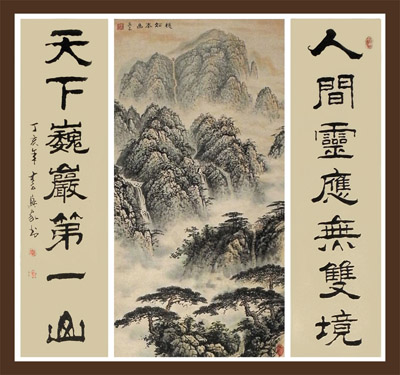 人間靈應無雙境
天下巍巖第一山
丁亥年